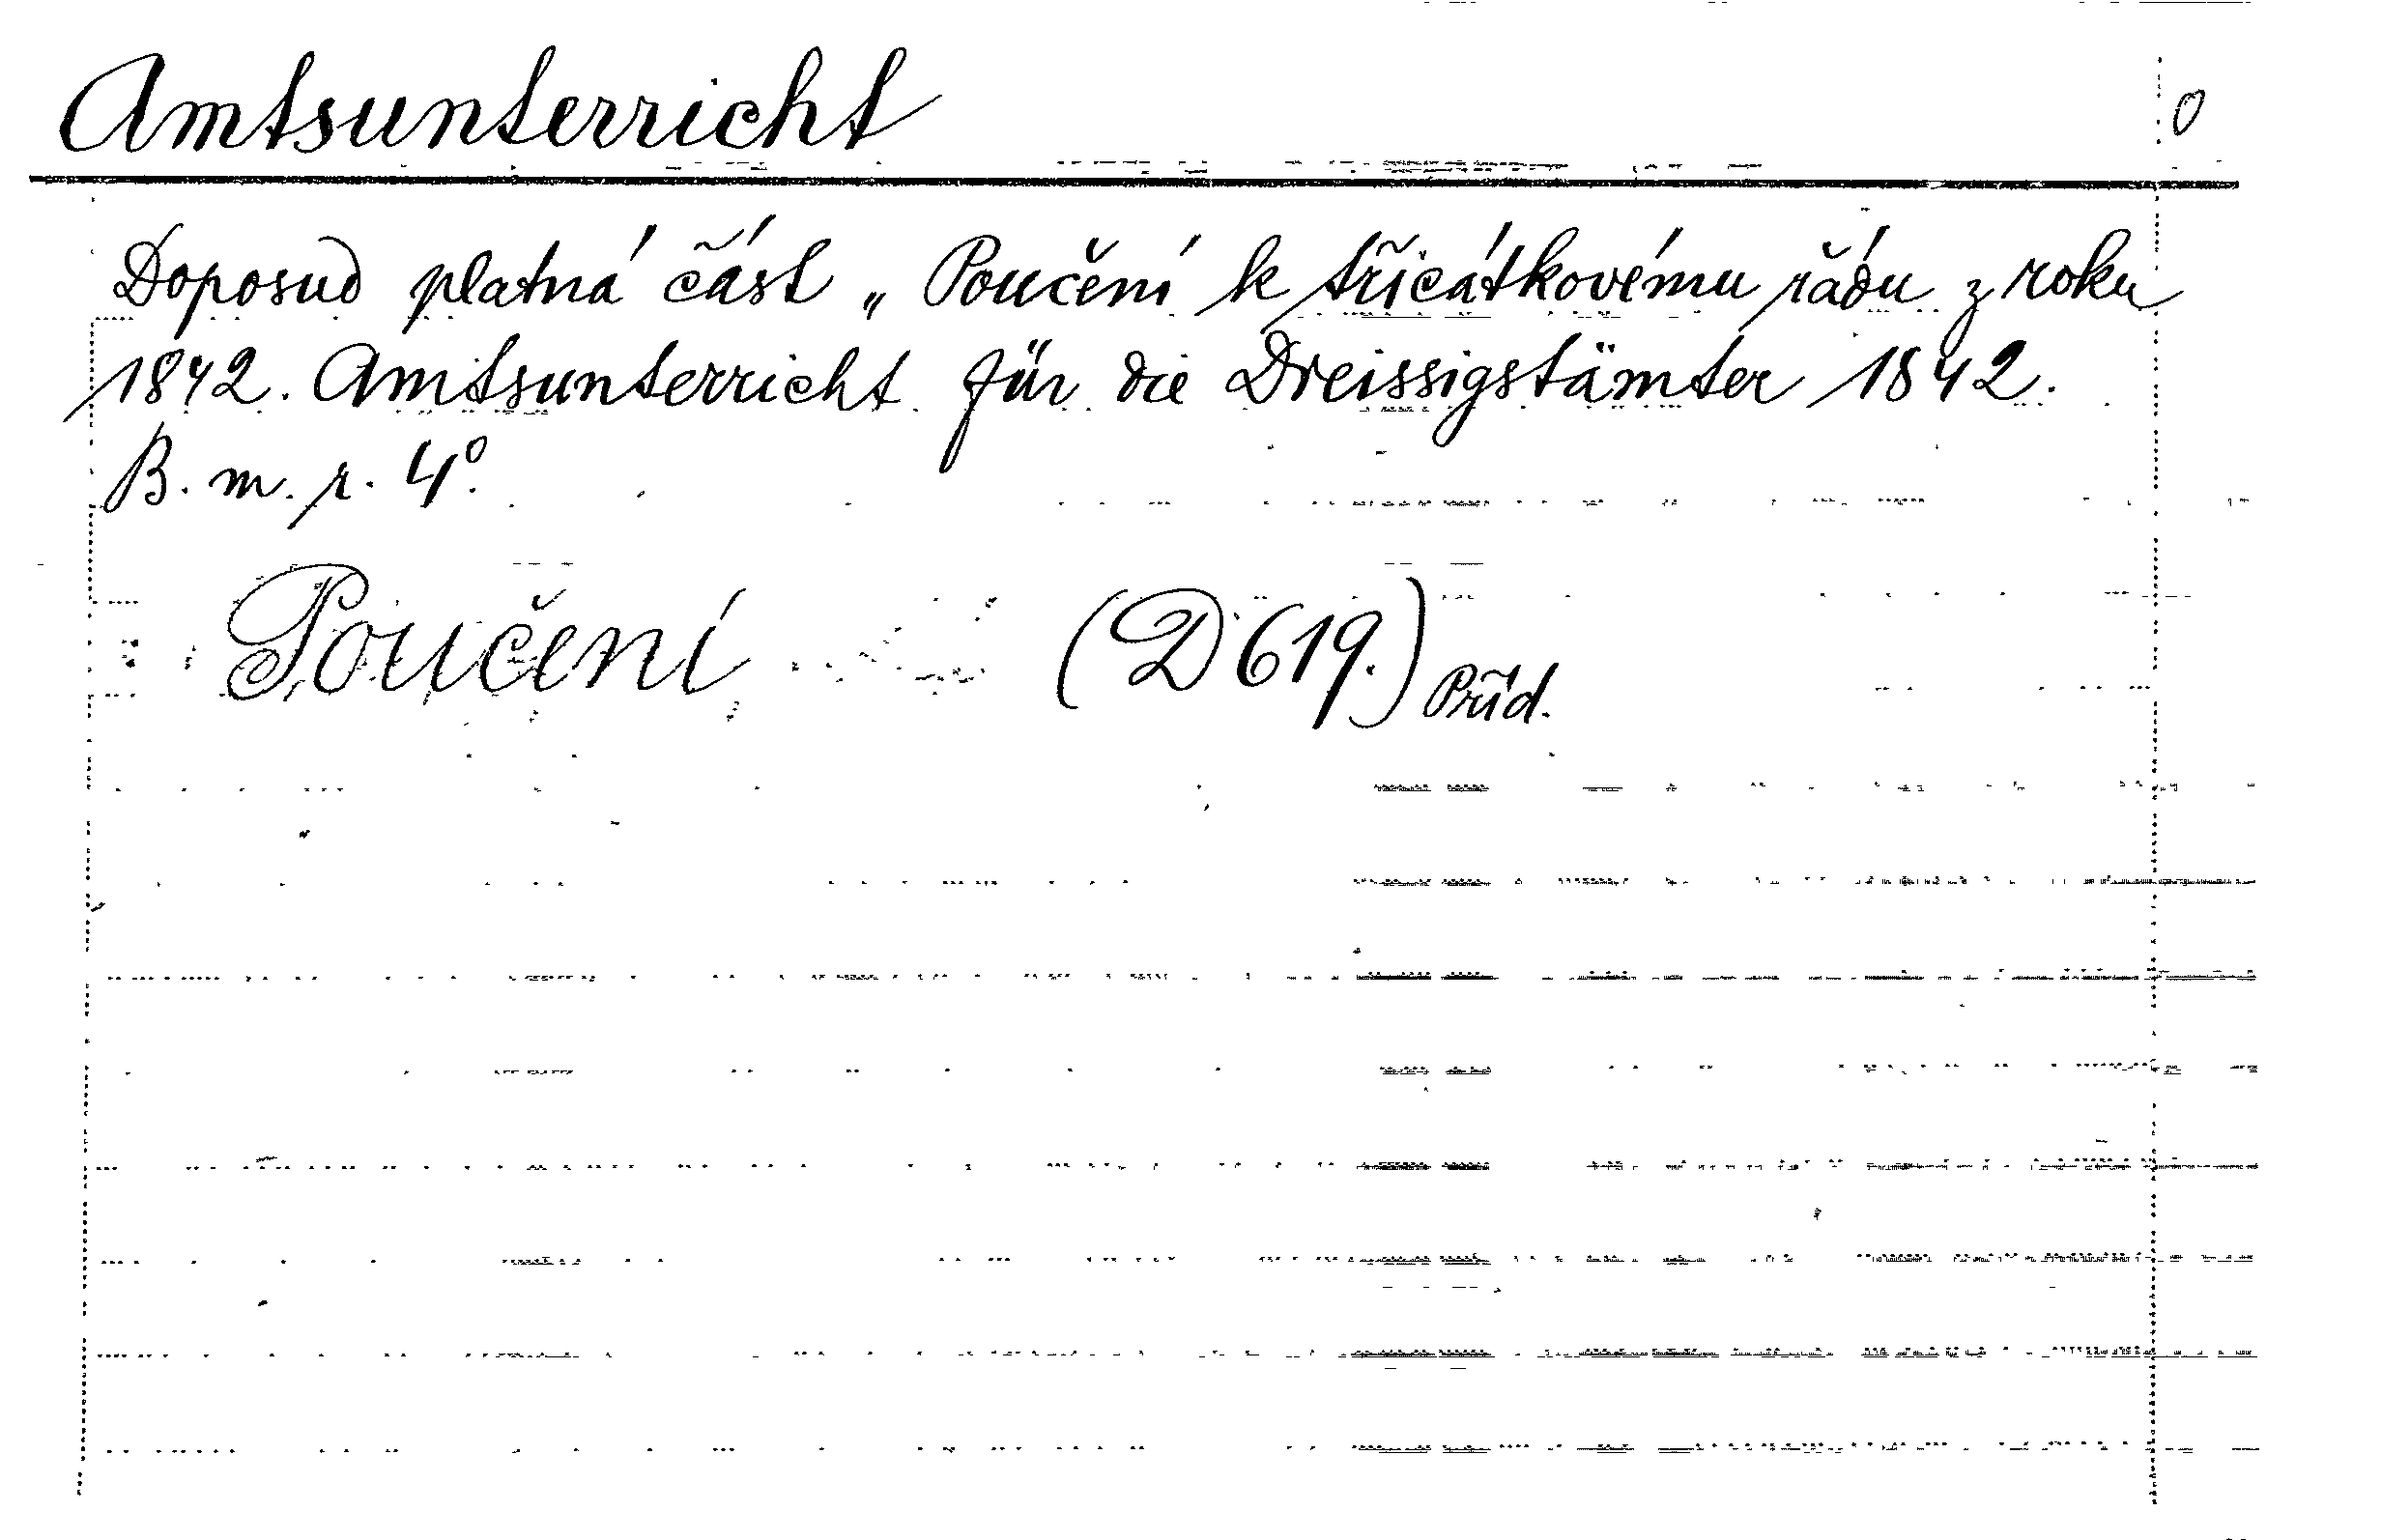 Amtsunterricht 0
Doposud platná část „Poučení k třicátkovému řádu z roku
1842. Amtsunterricht für die Dreissigstämter 1842.
B. m. r. 4°.
Poučení (D 619.) Příd.